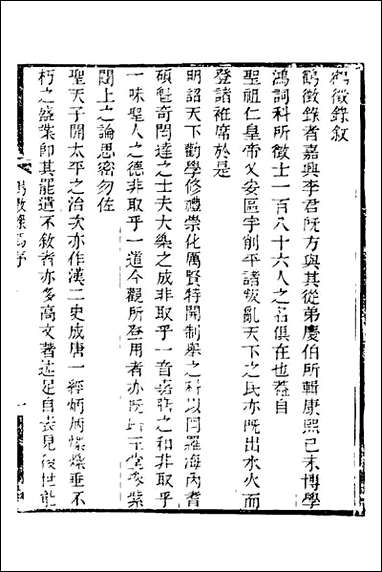 鶴徵錄敘
鶴徵錄者嘉興李君既方與其從弟慶伯所輯康熙己未博學
鴻詞科所徵士一百八十六人之名俱在也蓋自
聖祖仁皇帝乂安區宇創平諸叛亂天下之民亦既出水火而
登諸袵席於是
明詔天下勸學修禮崇化厲賢特開制舉之科以网羅海內耆
碩魁奇閎達之士夫大樂之成非取乎一音嘉膳之和非取乎
一味聖人之德非取乎一道今觀所登用者亦既玉堂
閣上之論思密勿佐
聖天子開太平之治次亦作漢二史成唐一經炳炳燦燦垂不
朽之盛業卽其罷遣不敘者亦多高文著述足自表見後世
鶴徵錄序
一